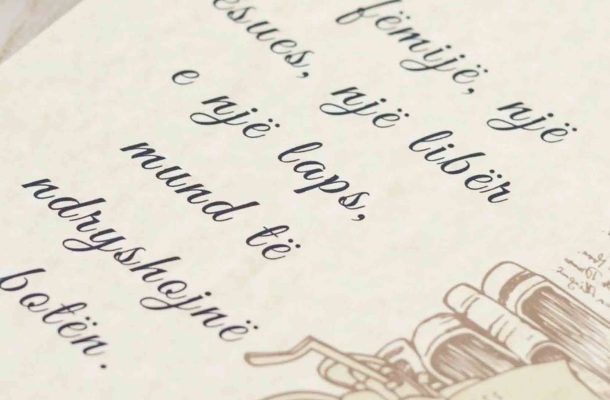 fëmijë, një
ësues, një libër
e një laps,
mund të
ndryshojnë
botën.